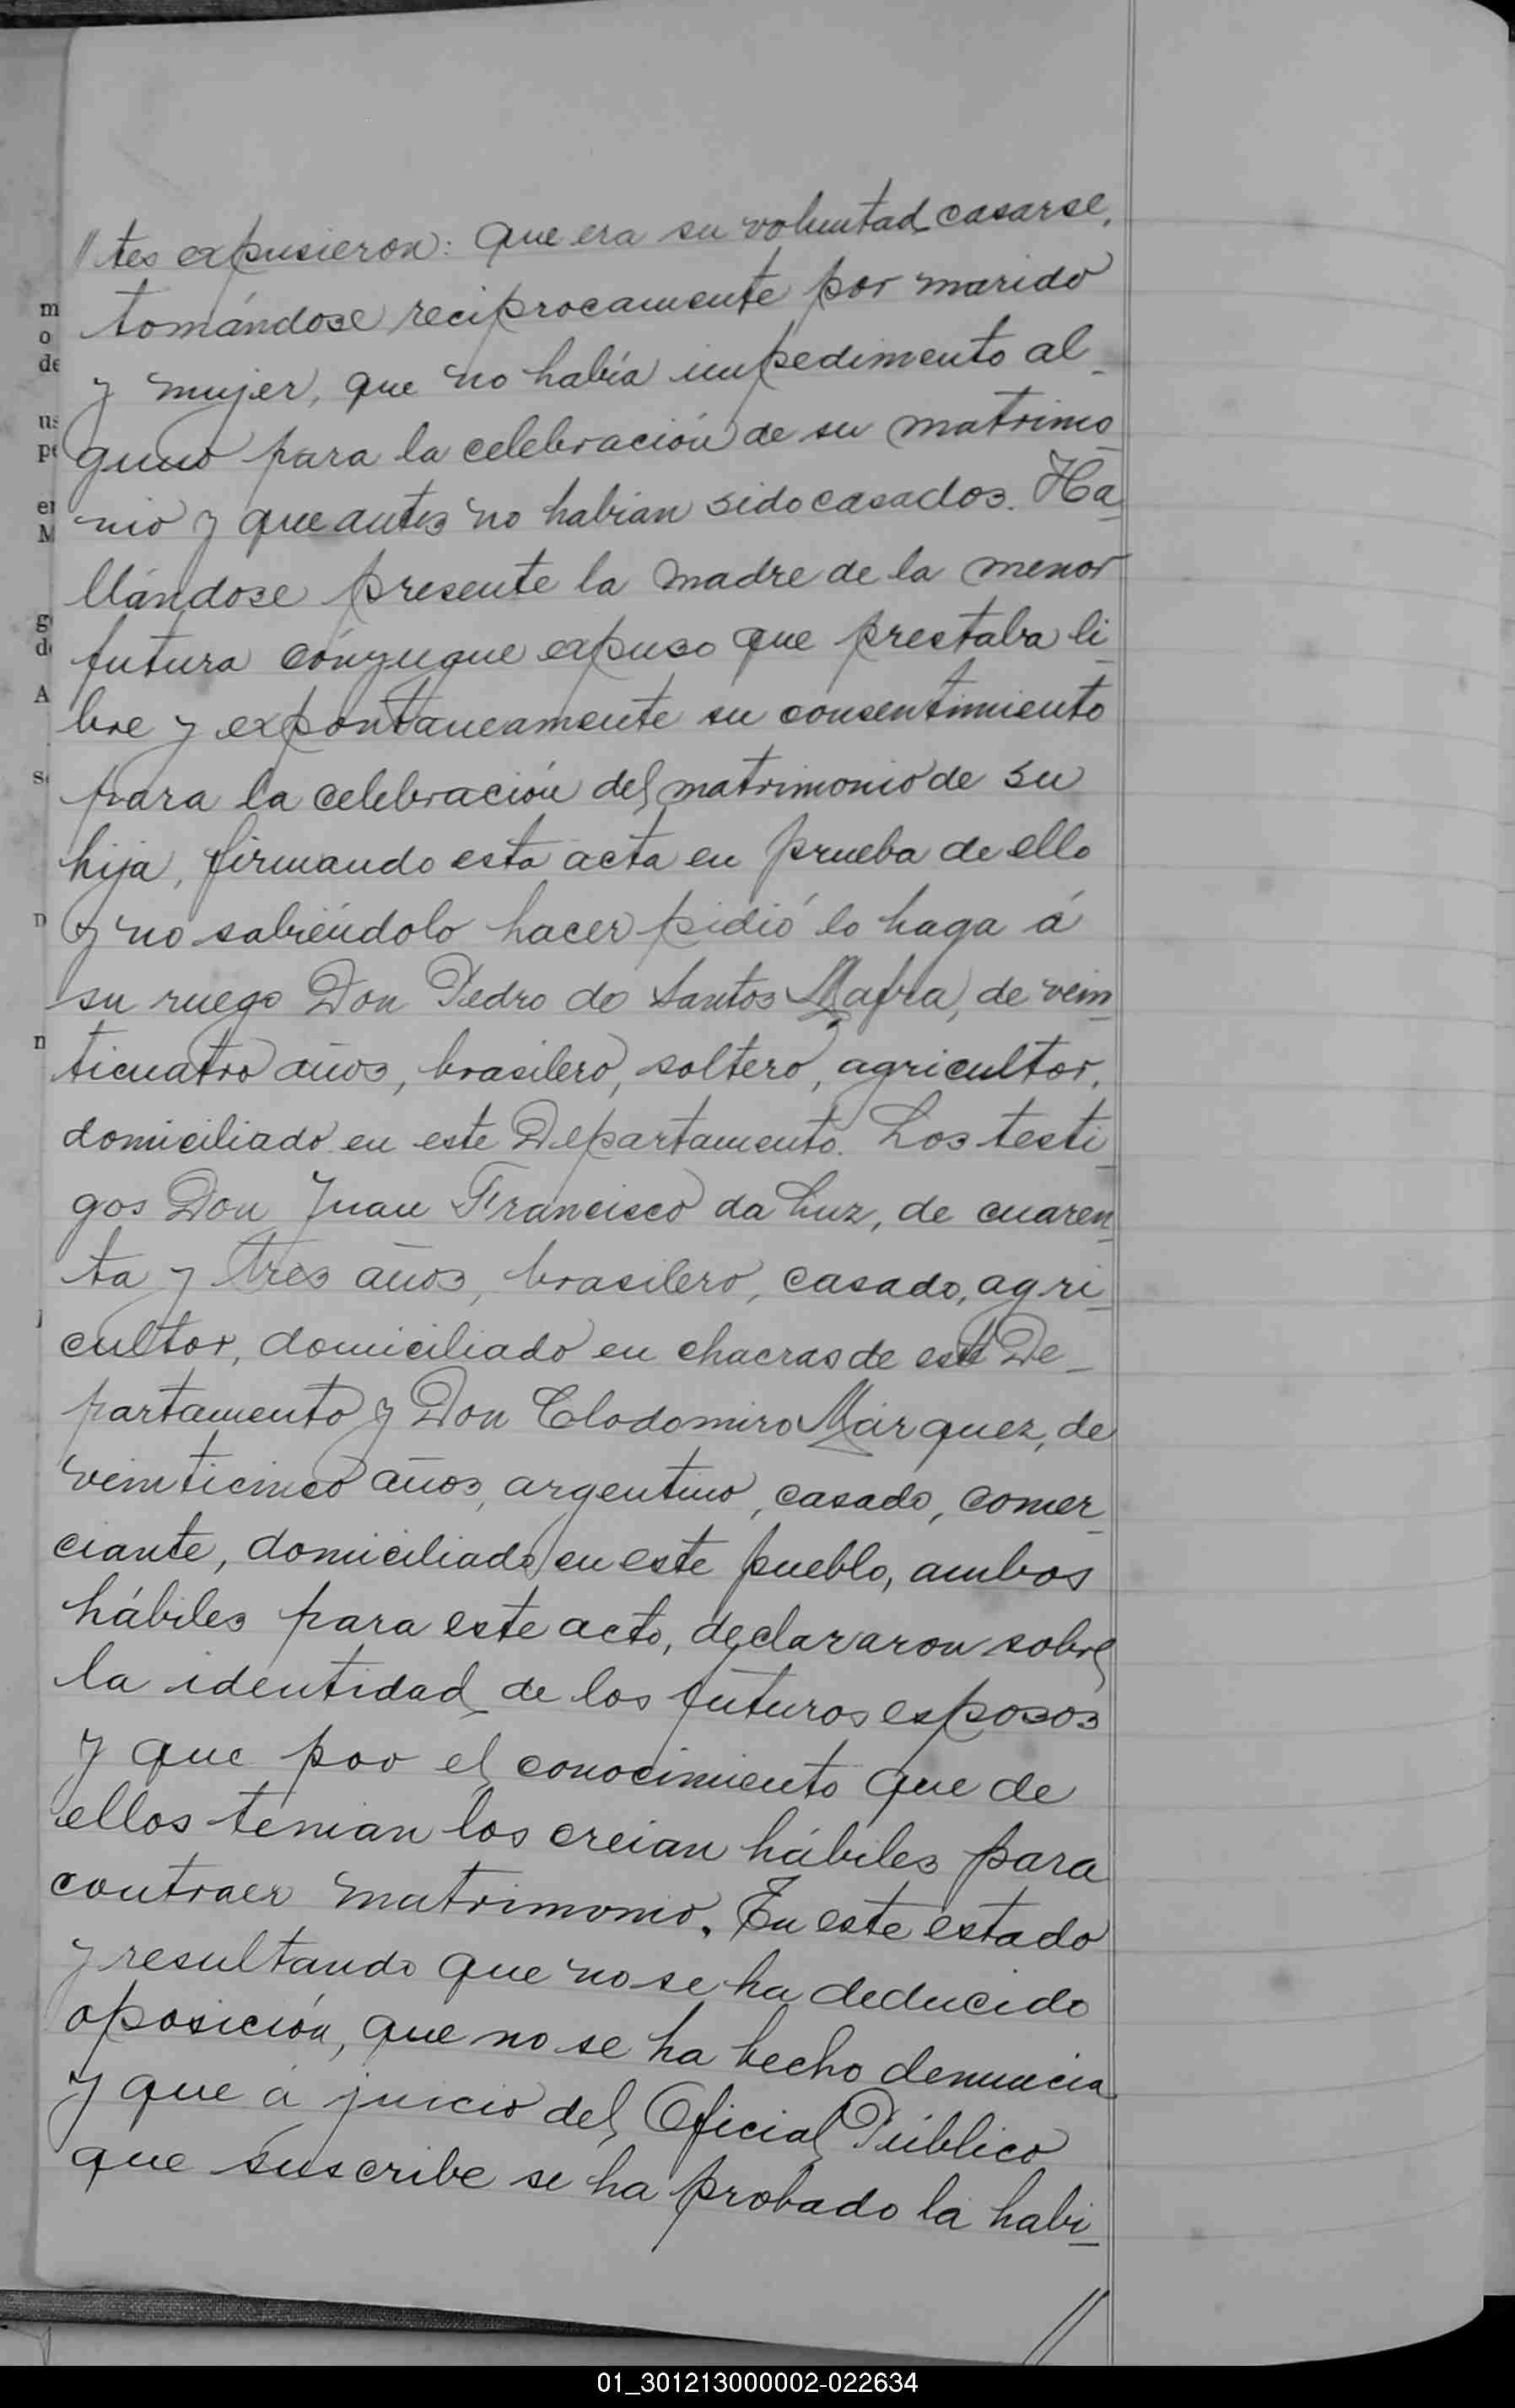 // tes expusieron: Que era su voluntad casarse,
tomándose reciprocamente por marido
y mujer, que no había impedimento al_
guno para la celebración de su matrimo_
nio y que antes no habian sido casados. Ha_
llándose presente la madre de la menor
futura cónyugue expuso que prestaba li_
bre y expontaneamente su consentimiento
para la celebración del matrimonio de su
hija, firmando esta acta en prueba de ello
y no sabiéndolo hacer pidió lo haga á
su ruego Don Pedro do Santos Mafra, de vein_
ticuatro años, brasilero, soltero, agricultor,
domiciliado en este Departamento. Los testi_
gos Don Juan Francisco da Luz, de cuaren_
ta y tres años, brasilero, casado, agri_
cultor, domiciliado en chacras de este De_
partamento y Don Clodomiro Márquez, de
veinticinco años, argentino, casado, comer_
ciante, domiciliado en este pueblo, ambos
hábiles para este acto, declararon sobre
la identidad de los futuros esposos
y que por el conocimiento que de
ellos tenian los creian hábiles para
contraer matrimonio. En este estado
y resultando que no se ha deducido
oposición, que no se ha hecho denuncia
y que á juicio del Oficial Público
que suscribe se ha probado la habi_
//
m
o
de
pe
M
g
d
A
s
D
n
01_301213000002-022634